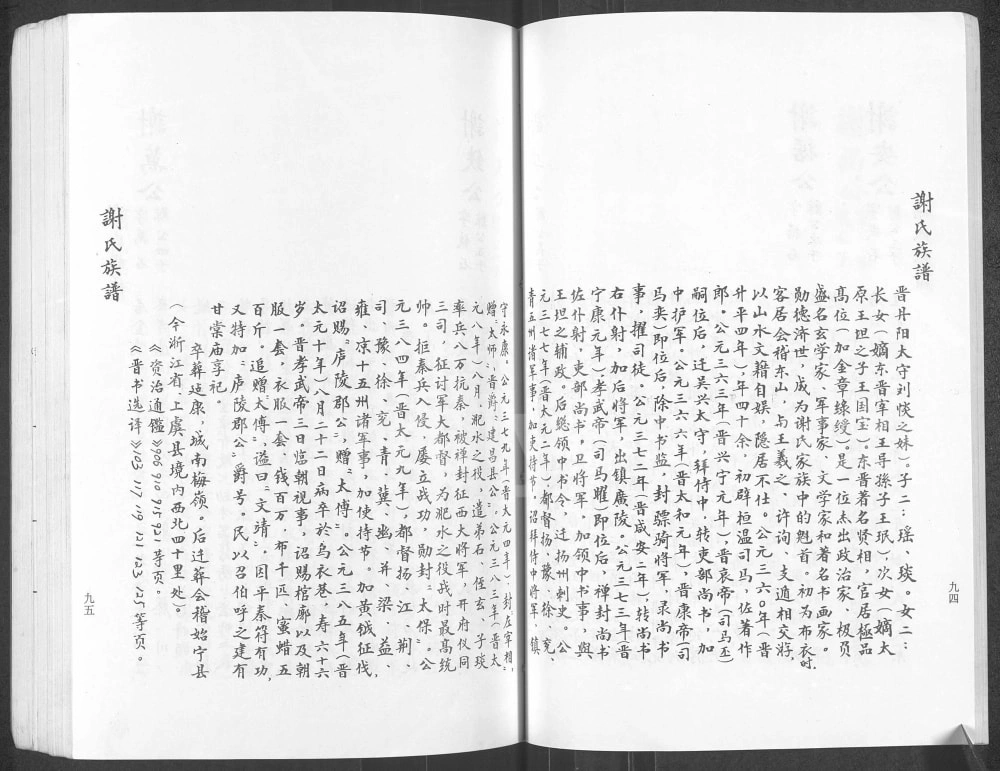 謝氏族譜
九四
晋丹阳太守刘惔之妹）。子二：瑶、琰。女二：
长女（嫡东晋宰相王导孙子王珉）、次女（嫡太
原王坦之子王国宝）、东晋著名贤相，官居極品
髙位（加金章緑绶），是一位杰出政治家，极负
盛名玄学家、军事家、文学家和著名书画家。
勋德济世，成为谢氏家族中的魁首。初为布衣时，
客居会稽东山，与王羲之、许询、支遁相交游，
以山水文籍自娱，隐居不仕。公元三六〇年（晋
升平四年），年四十余，初辟桓温司马，佐著作
郎。公元三六三年（晋兴宁元年），晋哀帝（司马丕）
嗣位后，迁吴兴太守，拜侍中，转吏部尚书，加
中护军。公元三六六年（晋太和元年），晋康帝（司
马奕）即位后，除中书监，封骠骑将军，录尚书
事，擢司徒。公元三七二年（晋咸安二年），转尚书
右仆射，加后将军，出镇廣陵。公元三七三年（晋
宁康元年）孝武帝（司马曜）即位后，禅封尚书
佐仆射，吏部尚书，卫将军，加领中书事，與
王坦之辅政。后总领中书令，迁扬州刺史。公
元三七七年（晋太元二年），都督扬、豫、徐、兗、
青五州诸军事，加使持节，诏拜侍中將军，镇
守永康。公元三七九年（晋太元四年），封左宰相，
赠“太师”，晋爵“建昌县公”。公元三八三年（晋太
元八年）八月，淝水之役，遣弟石、侄玄、子琰
率兵八万抗秦，被禅封征西大將军，开府仪同
三司，征討军大都督，为淝水之役战时最高統
帅。拒秦兵入侵，屡立战功，勛封“太保”。公
元三八四年（晋太元九年），都督扬、江、荆、
司、豫、徐、兗、青、冀、幽、并、梁、益、
雍、凉十五州诸军事，加使持节。加黄钺征伐，
诏赐“庐陵郡公”，赠“太傅”。公元三八五年（晋
太元十年）八月二十二日病卒於乌衣巷，寿六十六
岁。晋孝武帝三日临朝视事，诏赐棺廓以及朝
服一套，衣服一套，钱百万，布千匹，蜜蜡五
百斤。追赠“太傅”，谥曰“文靖”。因平秦符有功，
又特加“庐陵郡公”爵号。民以召伯呼之建有
甘棠庙享祀。
卒葬延康，城南梅嶺。后迁葬会稽始宁县
（今浙江省上虞县境内西北四十里处）。
《资治通鑑》906 910 915 921等页
《晋书选译》103 117 119 121 123 125等页。
謝氏族譜
九五